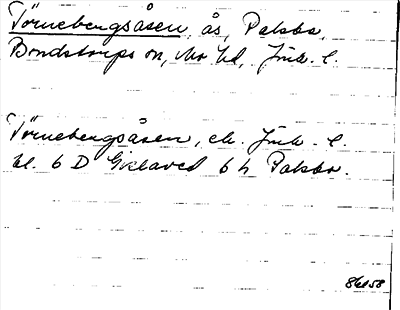 Törnebergsåsen, ås, Palsbo,
Bondstorps sn, Mo hd, Jönk. l.
Törnebergsåsen, ek. Jönk. l.
bl. 6 D Gislaved 6 h Palsbo.